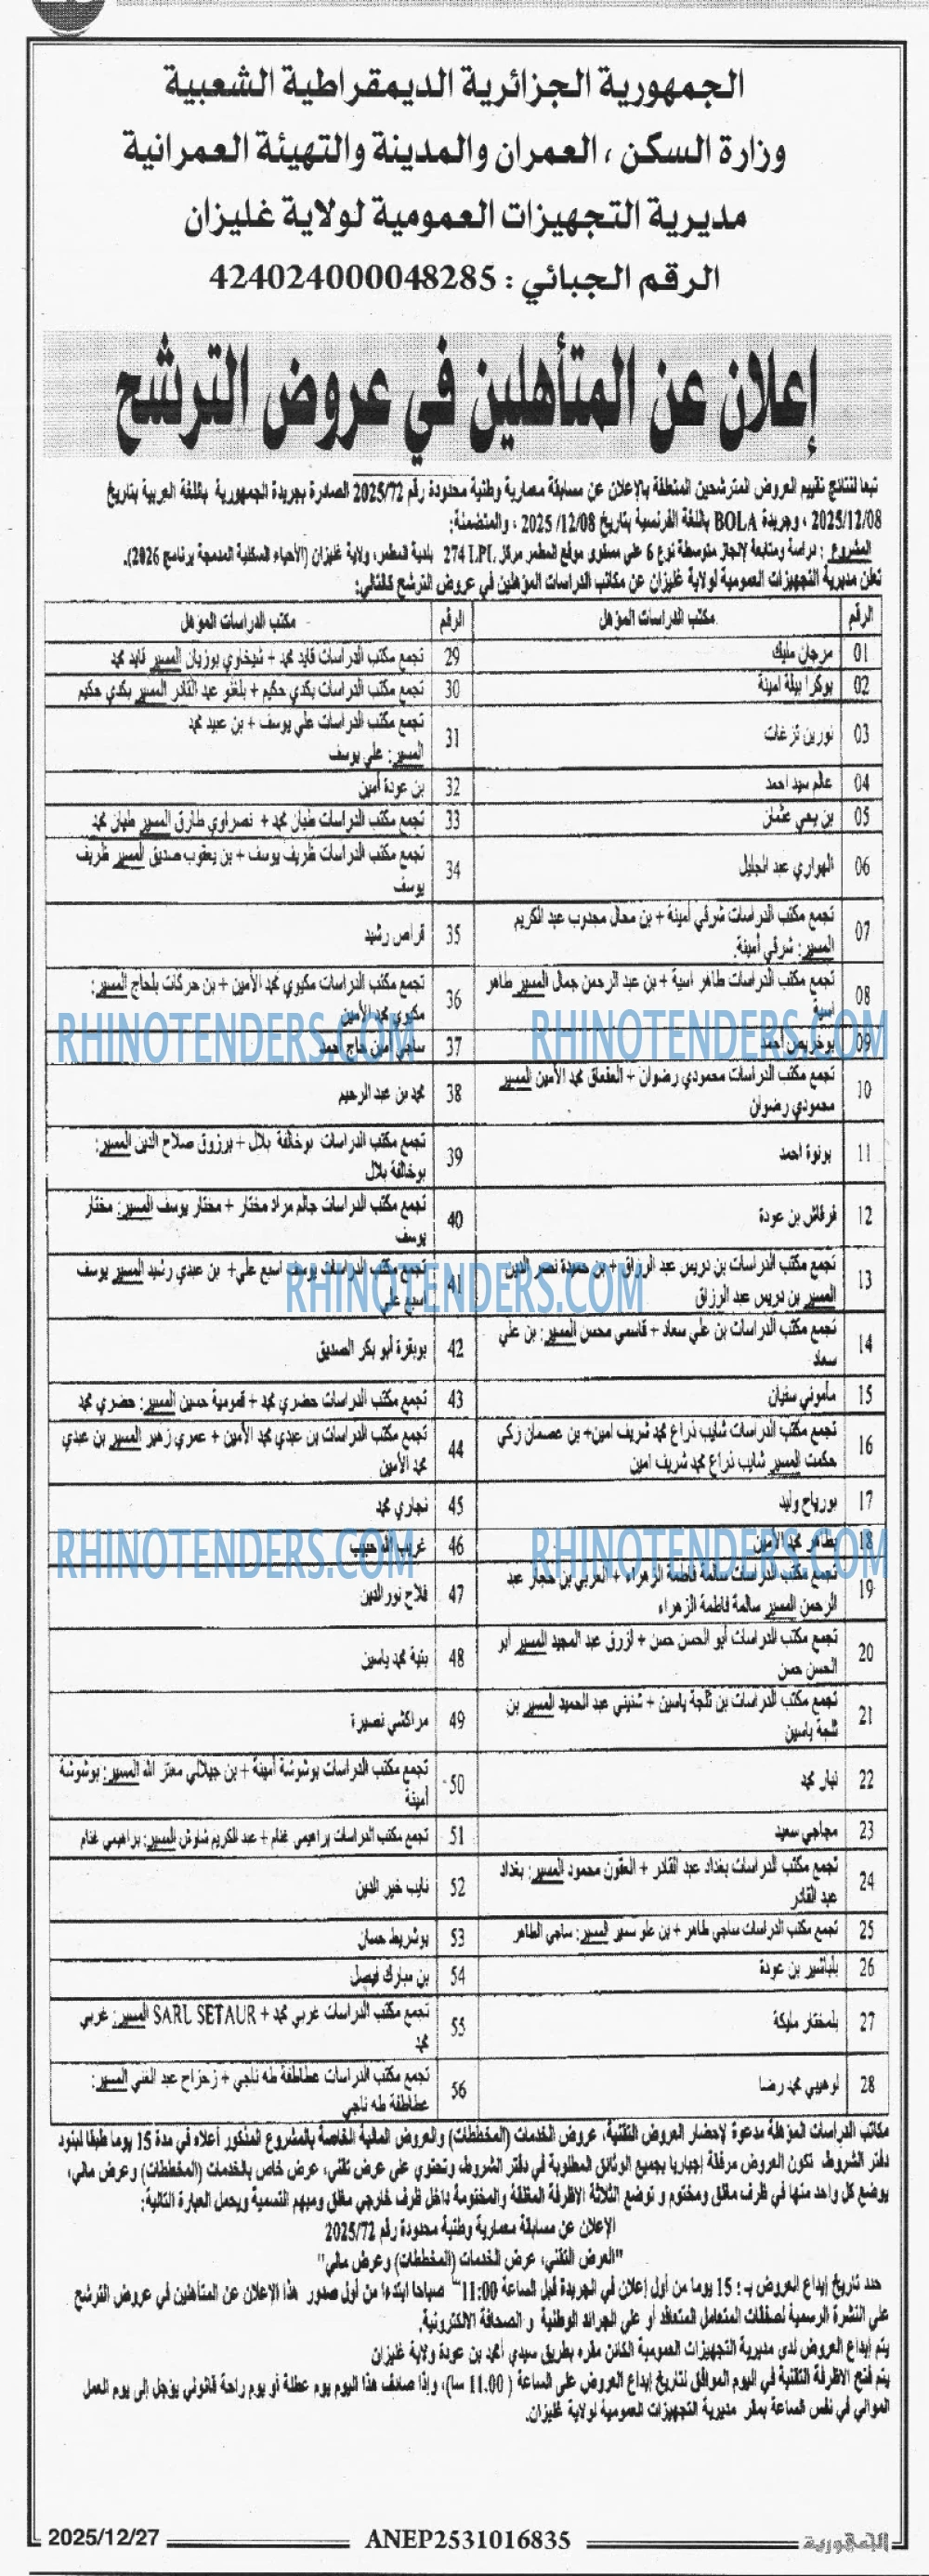 الجمهورية الجزائرية الديمقراطية الشعبية
وزارة السكن ، العمران والمدينة والتهيئة العمرانية
مديرية التجهيزات العمومية لولاية غليزان
الرقم الجبائي : 424024000048285
إعلان عن المتأهلين في عروض الترشح
تبعا لنتائج تقييم العروض المترشحين المتعلقة بالإعلان عن مسابقة معمارية وطنية محدودة رقم 2025/72 الصادرة بجريدة الجمهورية باللغة العربية بتاريخ
2025/12/08 ، وجريدة BOLA باللغة الفرنسية بتاريخ 2025/12/08 ، والمتضمنة:
المشروع : دراسة ومتابعة لإنجاز متوسطة نوع 6 على مستوى موقع المطمر مركز 274 LPL بلدية المطمر، ولاية غليزان (الأحياء السكنية المدمجة برنامج 2026).
تعلن مديرية التجهيزات العمومية لولاية غليزان عن مكاتب الدراسات المؤهلين في عروض الترشح كالتالي:
الرقم مكتب الدراسات المؤهل الرقم مكتب الدراسات المؤهل
01 مرجان مليك
02 بوكرابيلة امينة
03 نورين فرغات
04 عالم سيد احمد
05 بن يحي عثمان
06 الهواري عبد الجليل
07 تجمع مكتب الدراسات شرفي أمينة + بن محال مجدوب عبد الكريم
المسير: شرفي أمينة.
08 تجمع مكتب الدراسات طاهر اسية + بن عبد الرحمن جمال المسير طاهر
اسية
09 بوخريص أحمد
10 تجمع مكتب الدراسات محمودي رضوان + العقعاق محمد الأمين المسير
محمودي رضوان
11 بونوة احمد
12 فرفاش بن عودة
13 تجمع مكتب الدراسات بن دريس عبد الرزاق + بن حميدة نصر الدين
المسير بن دريس عبد الرزاق
14 تجمع مكتب الدراسات بن علي سعاد + قاسمي محسن المسير: بن علي
سعاد
15 مأموني سفيان
16 تجمع مكتب الدراسات شايب ذراع محمد شريف امين+ بن عصمان زكي
حكمت المسير شايب ذراع محمد شريف امين
17 بورياح وليد
18 بطاهر محمد الأمين
19 تجمع مكتب الدراسات سالمة فاطمة الزهراء + العربي بن حجار عبد
الرحمن المسير سالمة فاطمة الزهراء
20 تجمع مكتب الدراسات أبو الحسن حسن + لزرق عبد المجيد المسير أبو
الحسن حسن
21 تجمع مكتب الدراسات بن ثلجة ياسين + شنيني عبد الحميد المسير بن
ثلجة ياسين
22 نهار محمد
23 مجاجي سعيد
24 تجمع مكتب الدراسات بغداد عبد القادر + العقون محمود المسير: بغداد
عبد القادر
25 تجمع مكتب الدراسات ساجي طاهر + بن علو سمير المسير: ساجي الطاهر
26 بلباشير بن عودة
27 بلمختار مليكة
28 لوهيبي محمد رضا
29 تجمع مكتب الدراسات قايد محمد + شيخاوي بوزيان المسير قايد محمد
30 تجمع مكتب الدراسات بكدي حكيم + بلغلو عبد القادر المسير بكدي حكيم
31 تجمع مكتب الدراسات علي يوسف + بن عبيد محمد
المسير: علي يوسف
32 بن عودة أمين
33 تجمع مكتب الدراسات طيان محمد + نصراوي طارق المسير طيان محمد
34 تجمع مكتب الدراسات ظريف يوسف + بن يعقوب صديق المسير ظريف
يوسف
35 قراص رشيد
36 تجمع مكتب الدراسات مكيوي محمد الأمين + بن حركات بلحاج المسير:
مكيوي محمد الأمين
37 ساجي أمين حاج أحمد
38 محمد بن عبد الرحيم
39 تجمع مكتب الدراسات بوخالفة بلال + برزوق صلاح الدين المسير:
بوخالفة بلال
40 تجمع مكتب الدراسات جالم مراد مختار + مختار يوسف المسير: مختار
يوسف
41 تجمع مكتب الدراسات يوسف اسبع علي+ بن عبدي رشيد المسير يوسف
اسبع علي
42 بوبقرة أبو بكر الصديق
43 تجمع مكتب الدراسات حضري محمد + قمومية حسين المسير: حضري محمد
44 تجمع مكتب الدراسات بن عبدي محمد الأمين + عمري زهير المسير بن عبدي
محمد الأمين
45 نجاري محمد
46 غريب الله حبيب
47 فلاح نور الدين
48 بنية محمد ياسين
49 مراكشي نصيرة
50 تجمع مكتب الدراسات بوشوشة أمينة + بن جيلالي معتز الله المسير: بوشوشة
أمينة
51 تجمع مكتب الدراسات براهيمي غنام + عبد الكريم شاوش المسير: براهيمي غنام
52 نايب خير الدين
53 بوشريط حسان
54 بن مبارك فيصل
55 تجمع مكتب الدراسات غربي محمد + SARL SETAUR المسير: غربي
محمد
56 تجمع مكتب الدراسات عطاطفة طه ناجي + زحزاح عبد الغني المسير:
عطاطفة طه ناجي
مكاتب الدراسات المؤهلة مدعوة لإحضار العروض التقنية، عروض الخدمات (المخططات) والعروض المالية الخاصة بالمشروع المذكور أعلاه في مدة 15 يوما طبقا لبنود
دفتر الشروط تكون العروض مرفقة إجباريا بجميع الوثائق المطلوبة في دفتر الشروط، وتحتوي على عرض تقني، عرض خاص بالخدمات (المخططات) وعرض مالي،
يوضع كل واحد منها في ظرف مغلق ومختوم و توضع الثلاثة الاظرفة المغلقة والمختومة داخل ظرف خارجي مغلق ومبهم التسمية ويحمل العبارة التالية:
الإعلان عن مسابقة معمارية وطنية محدودة رقم 2025/72
"العرض التقني، عرض الخدمات (المخططات) وعرض مالي"
حدد تاريخ إيداع العروض بـ : 15 يوما من أول إعلان في الجريدة قبل الساعة 11:00 صباحا ابتداءا من أول صدور هذا الإعلان عن المتأهلين في عروض الترشح
على النشرة الرسمية لصفقات المتعامل المتعاقد أو على الجرائد الوطنية و الصحافة الالكترونية.
يتم إيداع العروض لدى مديرية التجهيزات العمومية الكائن مقره بطريق سيدي أمحمد بن عودة ولاية غليزان
يتم فتح الاظرفة التقنية في اليوم الموافق لتاريخ إيداع العروض على الساعة ( 11.00 سا)، وإذا صادف هذا اليوم يوم عطلة أو يوم راحة قانوني يؤجل إلى يوم العمل
الموالي في نفس الساعة بمقر مديرية التجهيزات العمومية لولاية غليزان.
الجمهورية ANEP2531016835 2025/12/27
RHINOTENDERS.COM
RHINOTENDERS.COM
RHINOTENDERS.COM
RHINOTENDERS.COM
RHINOTENDERS.COM